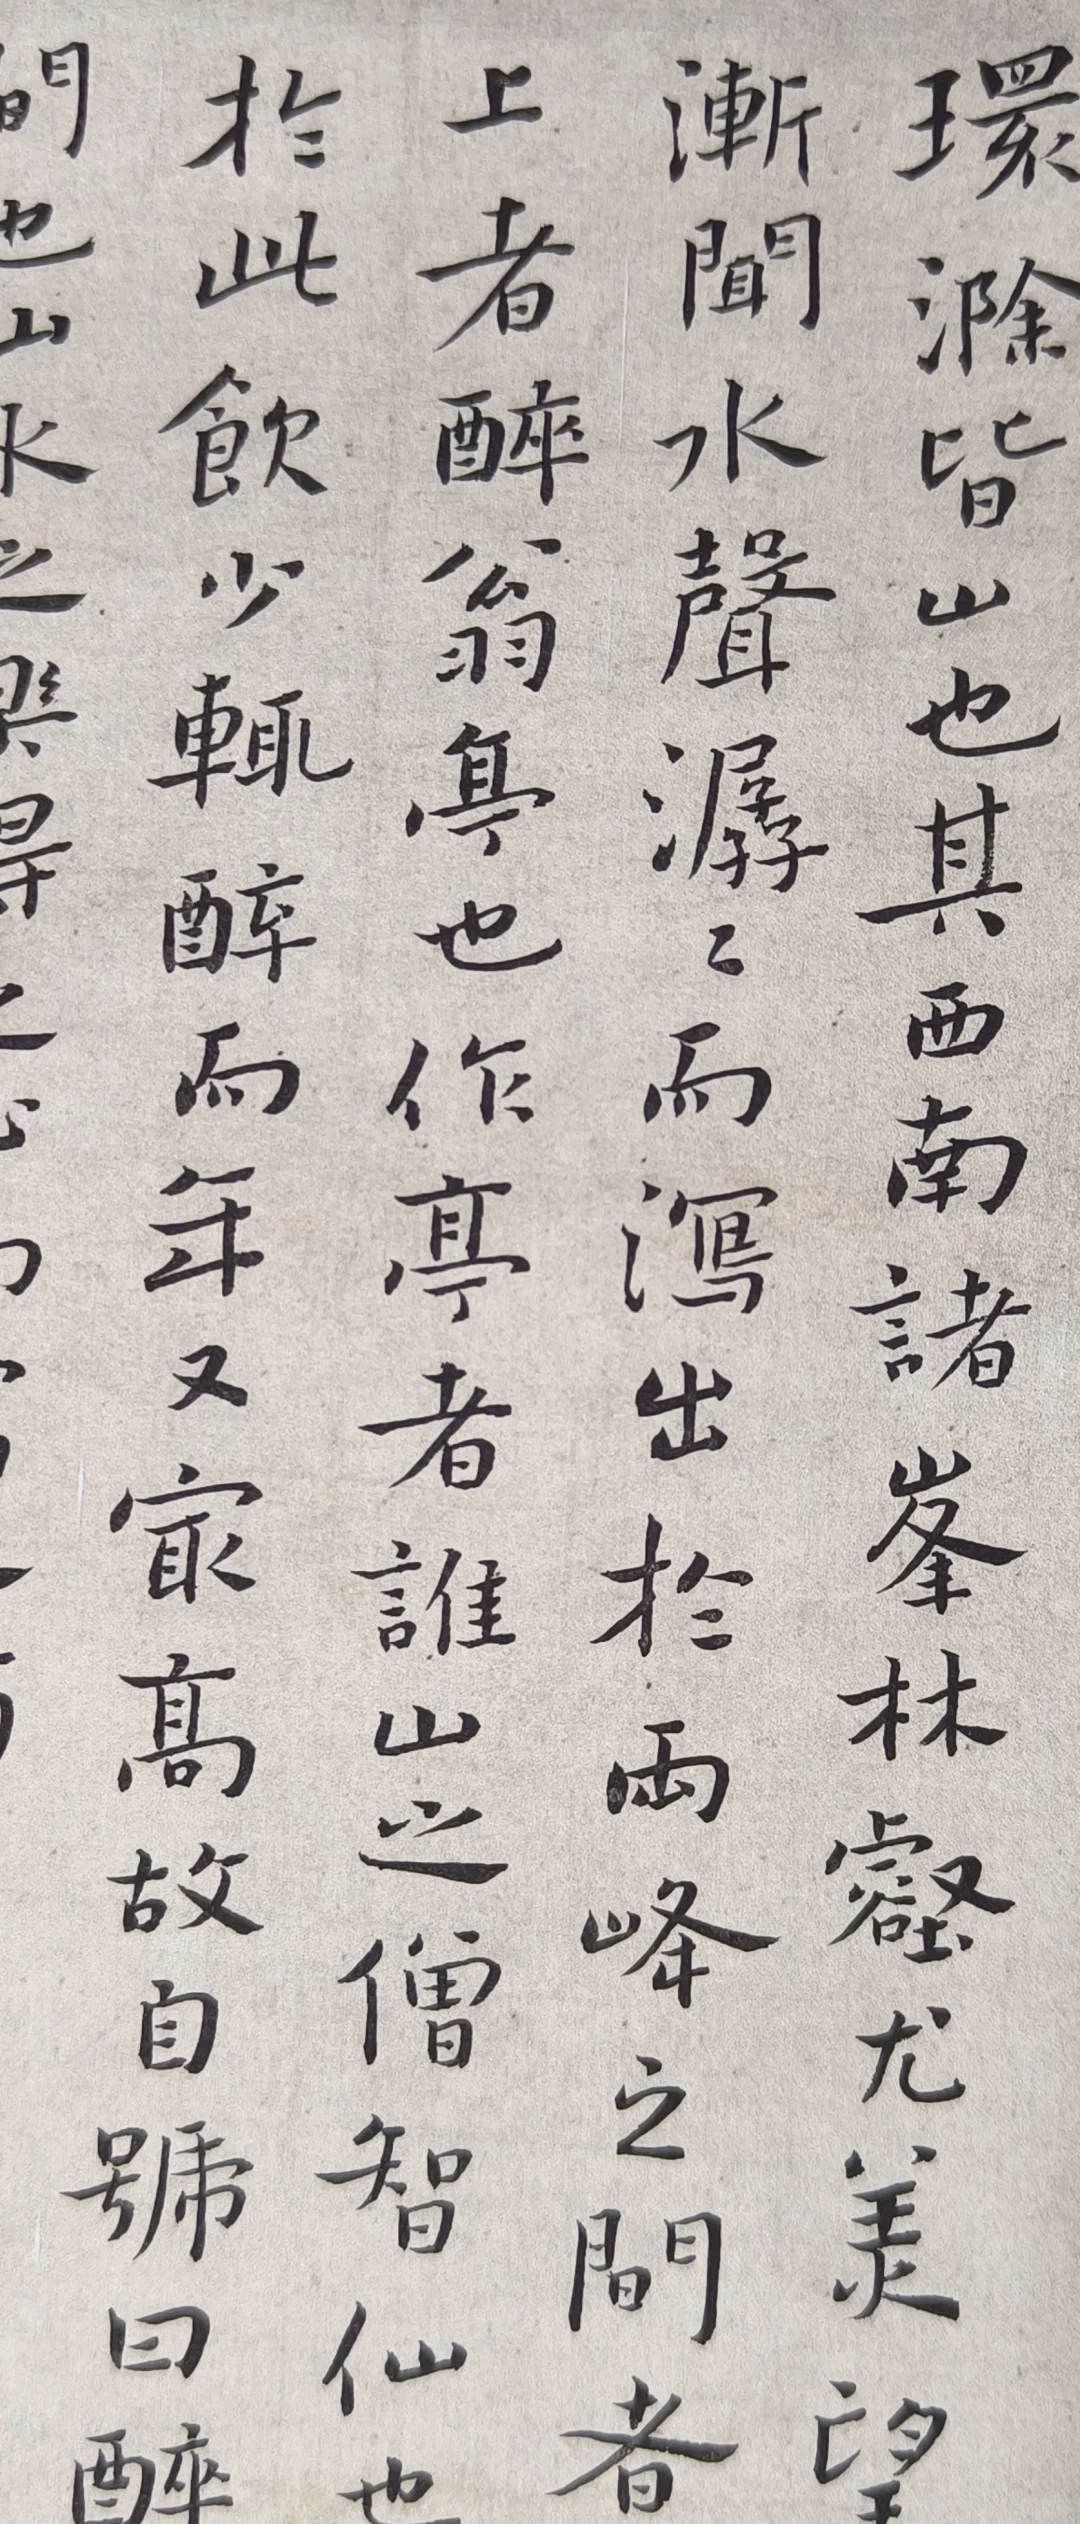 環滁皆山也其西南諸峯林壑尤美望
漸聞水聲潺〻而瀉出於兩峰之間者
上者醉翁亭也作亭者誰山之僧智仙也
於此飲少輒醉而年又冣髙故自號曰醉
間也山水之樂得之心而